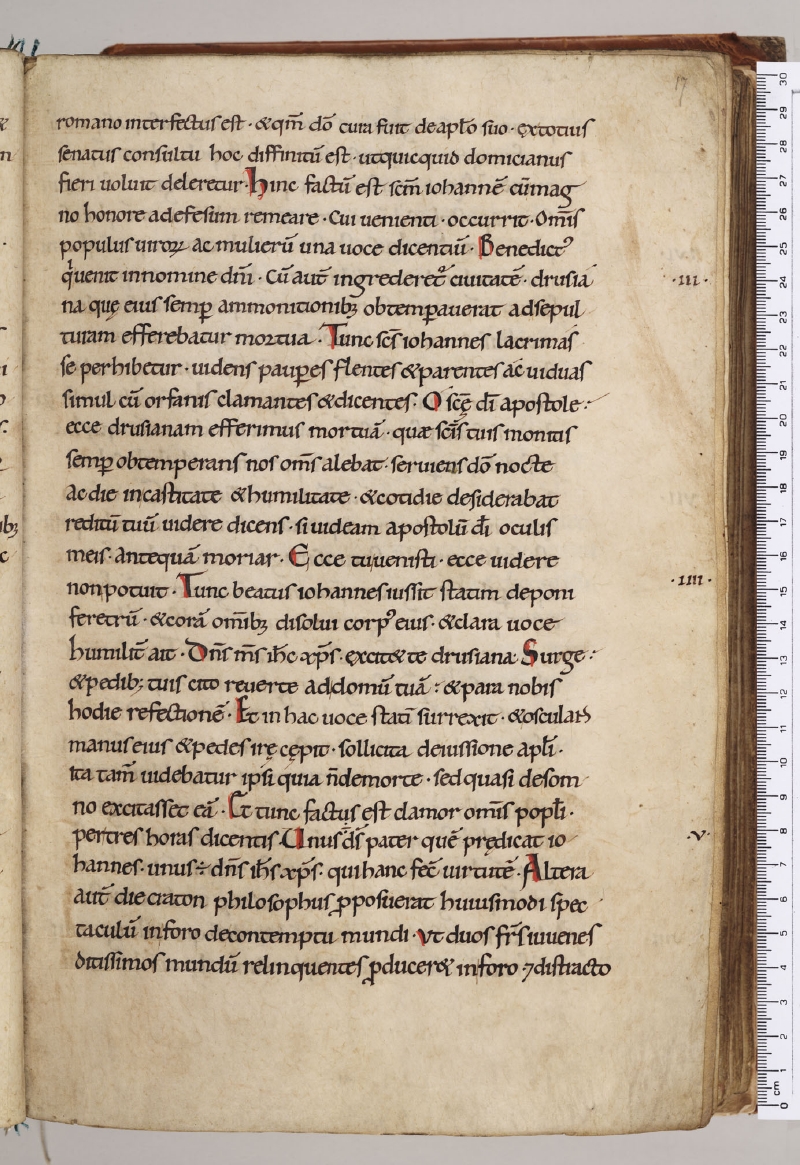 17
romano interfectus est · & qm̄ dō cura fuit de aplo suo · ex totius
senatus consultu hoc diffinitū est · ut quicquid domicianus
fieri uoluit deleretur · Hinc factū est scm̄ iohannē cū mag
no honore ad efesum remeare · Cui uenienti · occurrit · Om̄is
populus uiroꝝ ac mulierū una uoce dicentiū · Benedictꝰ
q uenit in nomine dn̄i · Cū aut̄ ingrederet᷑ ciuitatē · drusia
·iii·
na quę eius semp̄ ammonitionibꝫ obtemꝑauerat ad sepul
turam efferebatur mortua · Tunc scs̄ iohannes lacrimas
se perhibetur · uidens pauꝑes flentes & parentes ac uiduas
simul cū orfanis clamantes & dicentes · O scę̄ dī apostole ·
ecce drusianam efferimus mortuā · quæ scīs tuis monitis
semp̄ obtemperans nos om̄s alebat · seruiens dō nocte
ac die in castitate & humilitate · & cotidie desiderabat
reditū tuū uidere dicens · si uideam apostolū dī oculis
meis · antequā moriar · Ecce tu uenisti · ecce uidere
non potuit · Tunc beatus iohannes iussit statim deponi
·iiii·
feretrū · & corā om̄ibꝫ disolui corpꝰ eius · & clara uoce
humilit̄ ait · Dn̄s m̄s ih̄c xp̄s · excit& te drusiana Surge ·
& pedibꝫ tuis cito reuerte ad domū tuā · & para nobis
hodie refectionē · Et in hac uoce statī surrexit · & osculans
manus eius & pedes ire cępit · sollicita de iussione apli ·
Ita tam̄ uidebatur ipsi quia n̄ de morte · sed quasi de som
no excitasset eā · Et tunc factus est clamor om̄is popli ·
per tres horas dicentis · Unus ds̄ pater quē prędicat io
·v·
hannes · unus ÷ dn̄s ih̄s xp̄s · qui hanc fec̄ uirtutē · Altera
aut̄ die craton philosophus ꝓposuerat huiusmodi spec
taculū in foro de contemptu mundi · Vt duos fr̄s iuuenes
ditissimos mundū relinquentes ꝓducer& in foro · ⁊ distracto